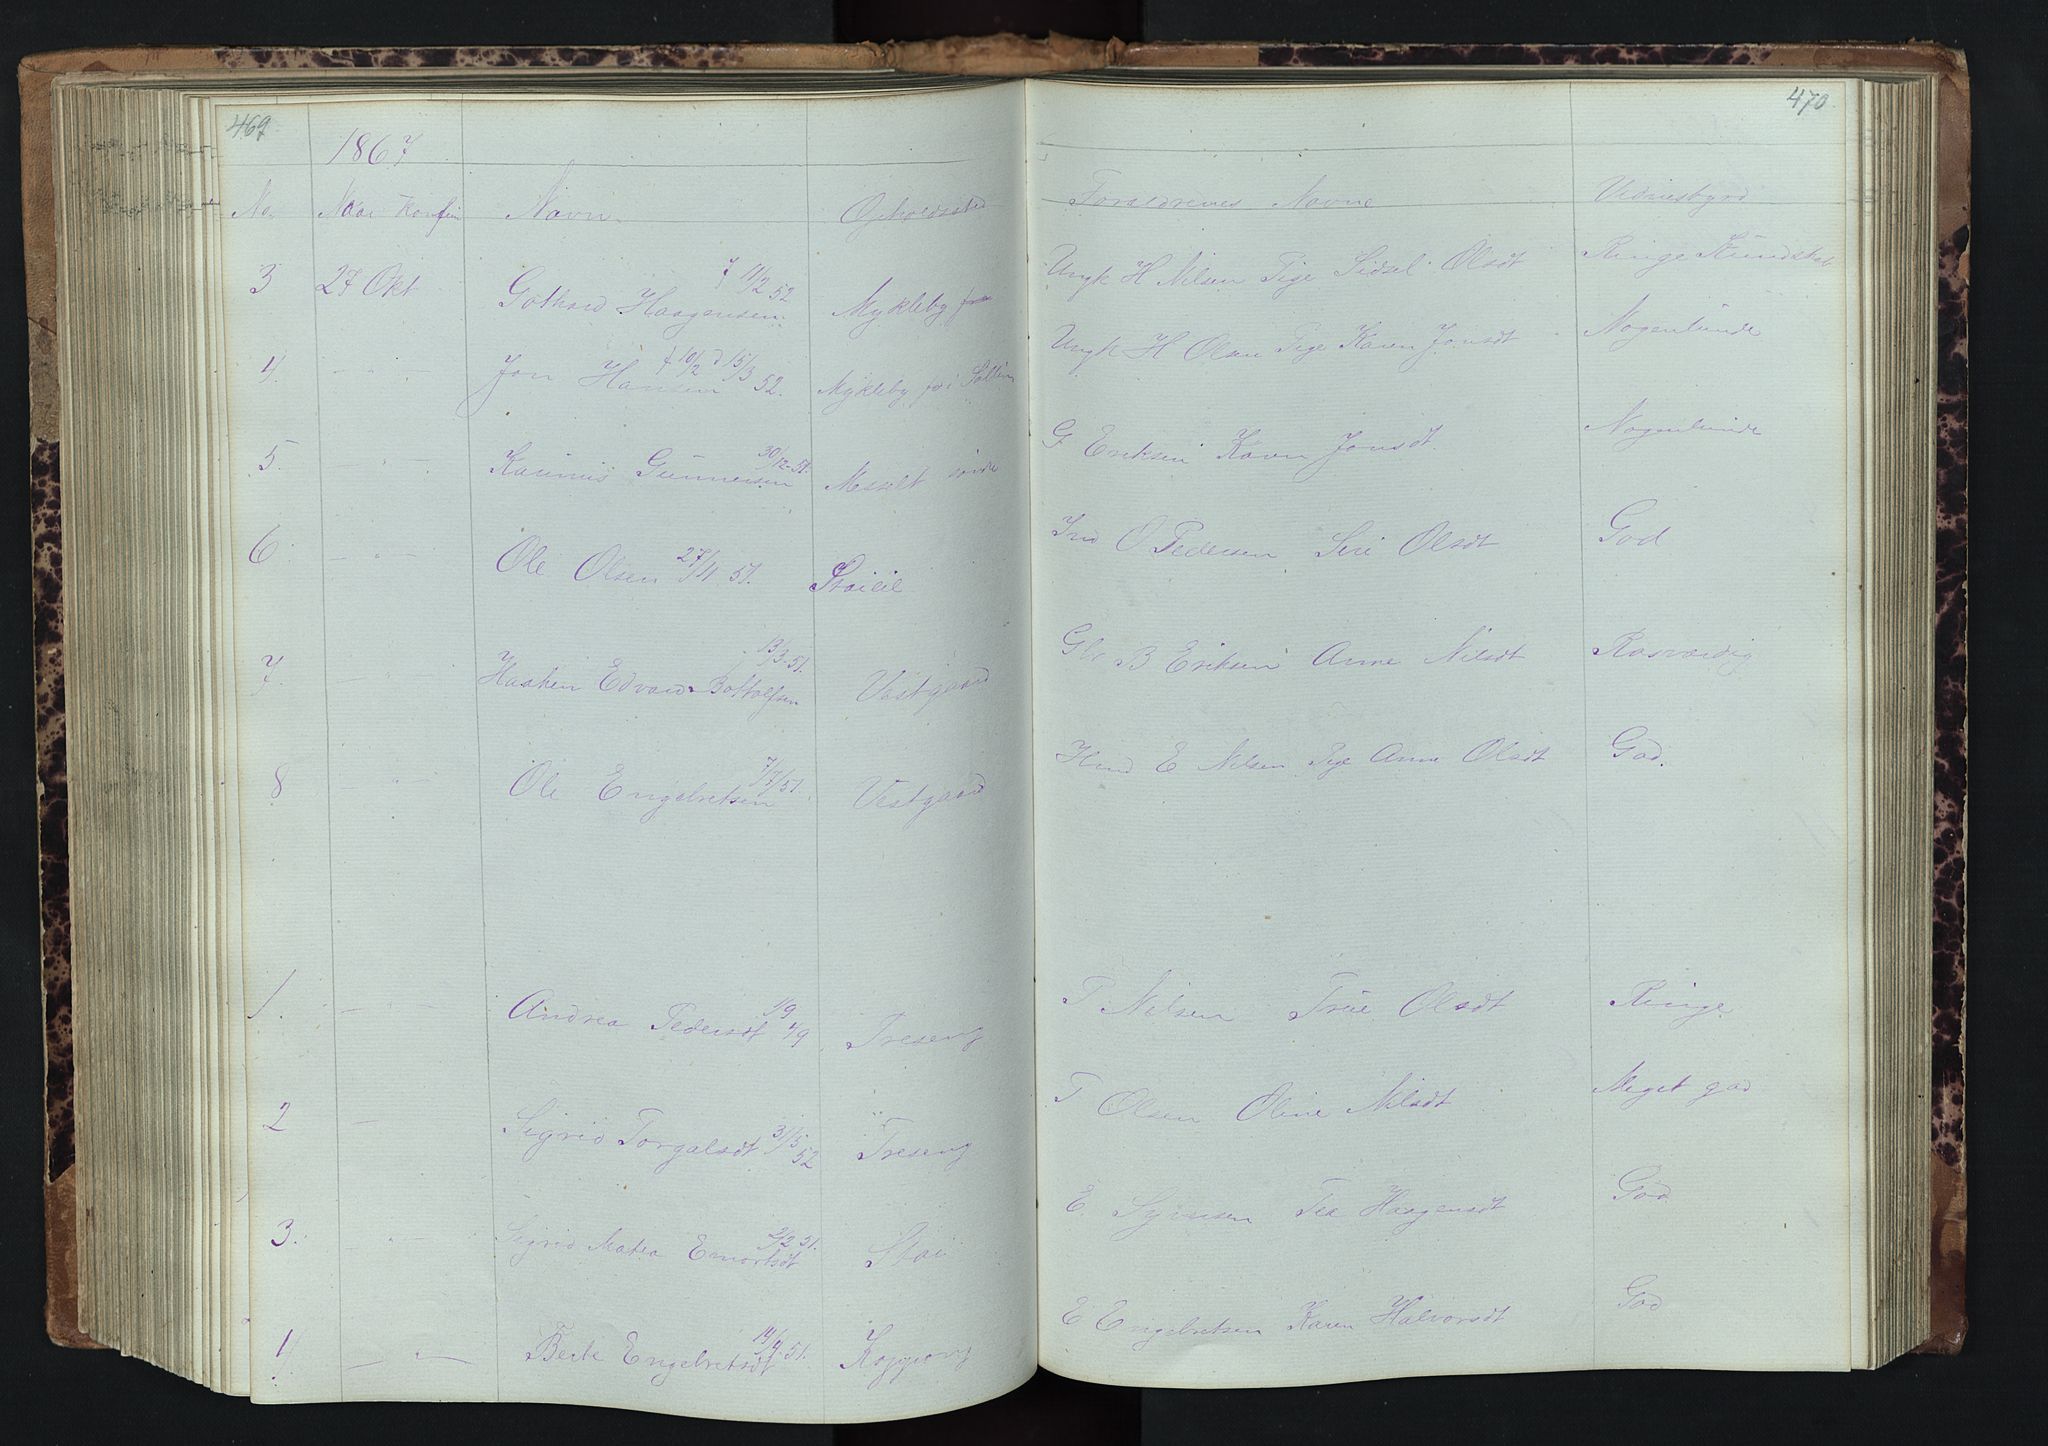 469
1867
No. Naar Konfir Navn Opholdssted
3 27 Okt Gothard Haagensen f 11/2 52 Mykleby
4. — " — Jon Hansen f 10/2 d 15/3 52. Mykleby
5. — " — Karinus Gunnersen 30/12-51. Messelt søndre
6 — " — Ole Olsen 27/11 51.
7. — " — Haaken Edvard Bottolfsen 13/3-51. Vestgaard
8 — " — Ole Engebretsen 7/7/51. Vestgaard
1. — " — Andrea Pedersdt 1/9 49 Treseng
2 — Sigrid Torgalsdt 31/5 52 Treseng
3. — " — Sigrid Matea 2/2 51. Stai
4 — " — Berte Engebretsdt 19/4-51. Koppang
470
Forældrenes Navne Vidnesbyrd
Ungk H Nilsen Pige Sidsel Olsdt Ringe Kundskab
Ungk H Olsen Pige Karen Jonsdt Nogenlunde
G Eriksen Karen Jonsdt. Nogenlunde
Ind O Pedersen Siri Olsdt God
Gbr B Eriksen Anne Nilsdt Rosværdig
E Nilsen Pige Anne Olsdt God.
P Nilsen Olsdt Ringe
T Olsen Oline Nilsdt Meget god
E. Syversen Haagensdt God
E Engebretsen Karen Halvorsdt God